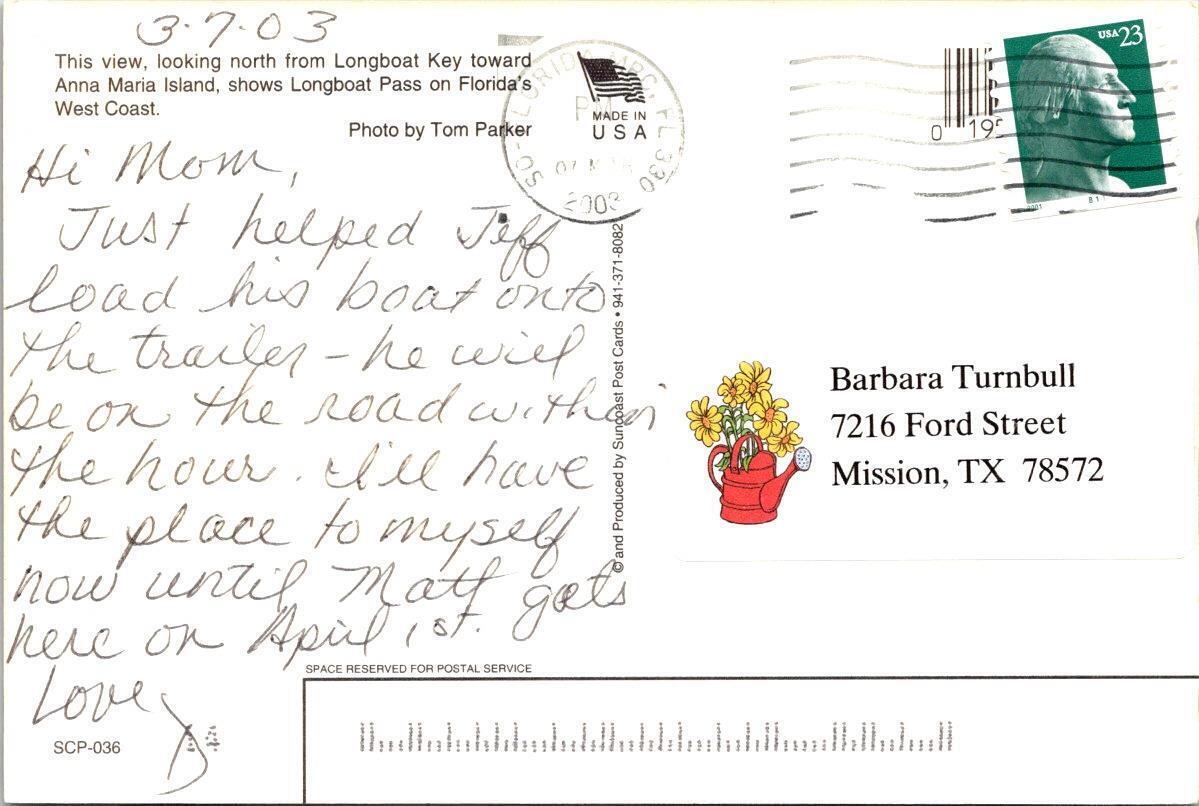 3-7-03
This view, looking north from Longboat Key toward
Anna Maria Island, shows Longboat Pass on Florida's
West Coast.
Photo by Tom Parker
Hi Mom,
Just helped Jeff
load his boat onto
the trailer - he will
be on the road within
the hour. I'll have
the place to myself
now until Matt gets
here on April 1st.
Love,
SCP-036
SO. FLORIDA FL 330
PM
07
2003
MADE IN
USA
© and Produced by Suncoast Post Cards • 941-371-8082
0 195
USA 23
2001
Barbara Turnbull
7216 Ford Street
Mission, TX 78572
SPACE RESERVED FOR POSTAL SERVICE